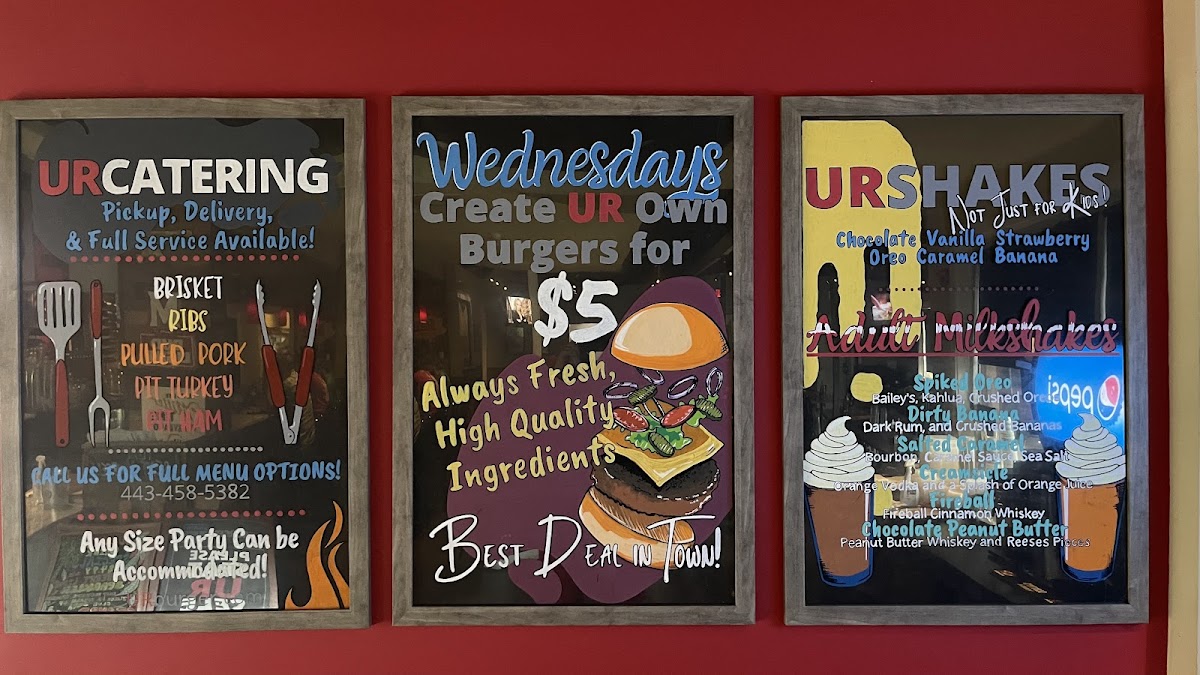 URCATERING
Pickup, Delivery,
& Full Service Available!
BRISKET
RIBS
PULLED PORK
PIT TURKEY
PIT HAM
CALL US FOR FULL MENU OPTIONS!
443-458-5382
Any Size Party Can be
Accommodated!
PLEASE
UR
Wednesdays
Create UR Own
Burgers for
$5
Always Fresh,
High Quality
Ingredients
BEST DEAL IN TOWN!
URSHAKES
NOT JUST FOR KIDS!
Chocolate Vanilla Strawberry
Oreo Caramel Banana
Adult Milkshakes
Spiked Oreo
Bailey's, Kahlua, Crushed Oreos
Dirty Banana
Dark Rum, and Crushed Bananas
Salted Caramel
Bourbon, Caramel Sauce, Sea Salt
Creamsicle
Orange Vodka and a Splash of Orange Juice
Fireball
Fireball Cinnamon Whiskey
Chocolate Peanut Butter
Peanut Butter Whiskey and Reeses Pieces
pepsi